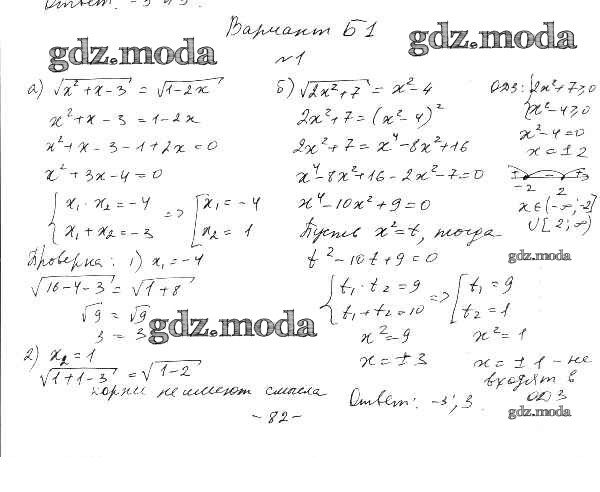 Ответ: -3 и 3.
Вариант Б1
gdz.moda
gdz.moda
№1
а) √(x²+x-3) = √(1-2x)
x²+x-3 = 1-2x
x²+x-3-1+2x=0
x²+3x-4=0
{x₁·x₂=-4
x₁+x₂=-3 => [x₁=-4
x₂=1
Проверка: 1) x₁=-4
√(16-4-3) = √(1+8)
√9 = √9
3 = 3
gdz.moda
2) x₂=1
√(1+1-3) = √(1-2)
корни не имеют смысла
б) √(2x²+7) = x²-4
2x²+7=(x²-4)²
2x²+7=x⁴-8x²+16
x⁴-8x²+16-2x²-7=0
x⁴-10x²+9=0
Пусть x²=t, тогда
t²-10t+9=0
{t₁·t₂=9
t₁+t₂=10 => [t₁=9
t₂=1
x²=9
x=±3
x²=1
x=±1 - не
входят в
ОДЗ
Ответ: -3; 3.
ОДЗ: {2x²+7≥0
x²-4≥0
x²-4=0
x=±2
-2 2
x∈(-∞;-2]
∪[2;∞)
gdz.moda
gdz.moda
-82-